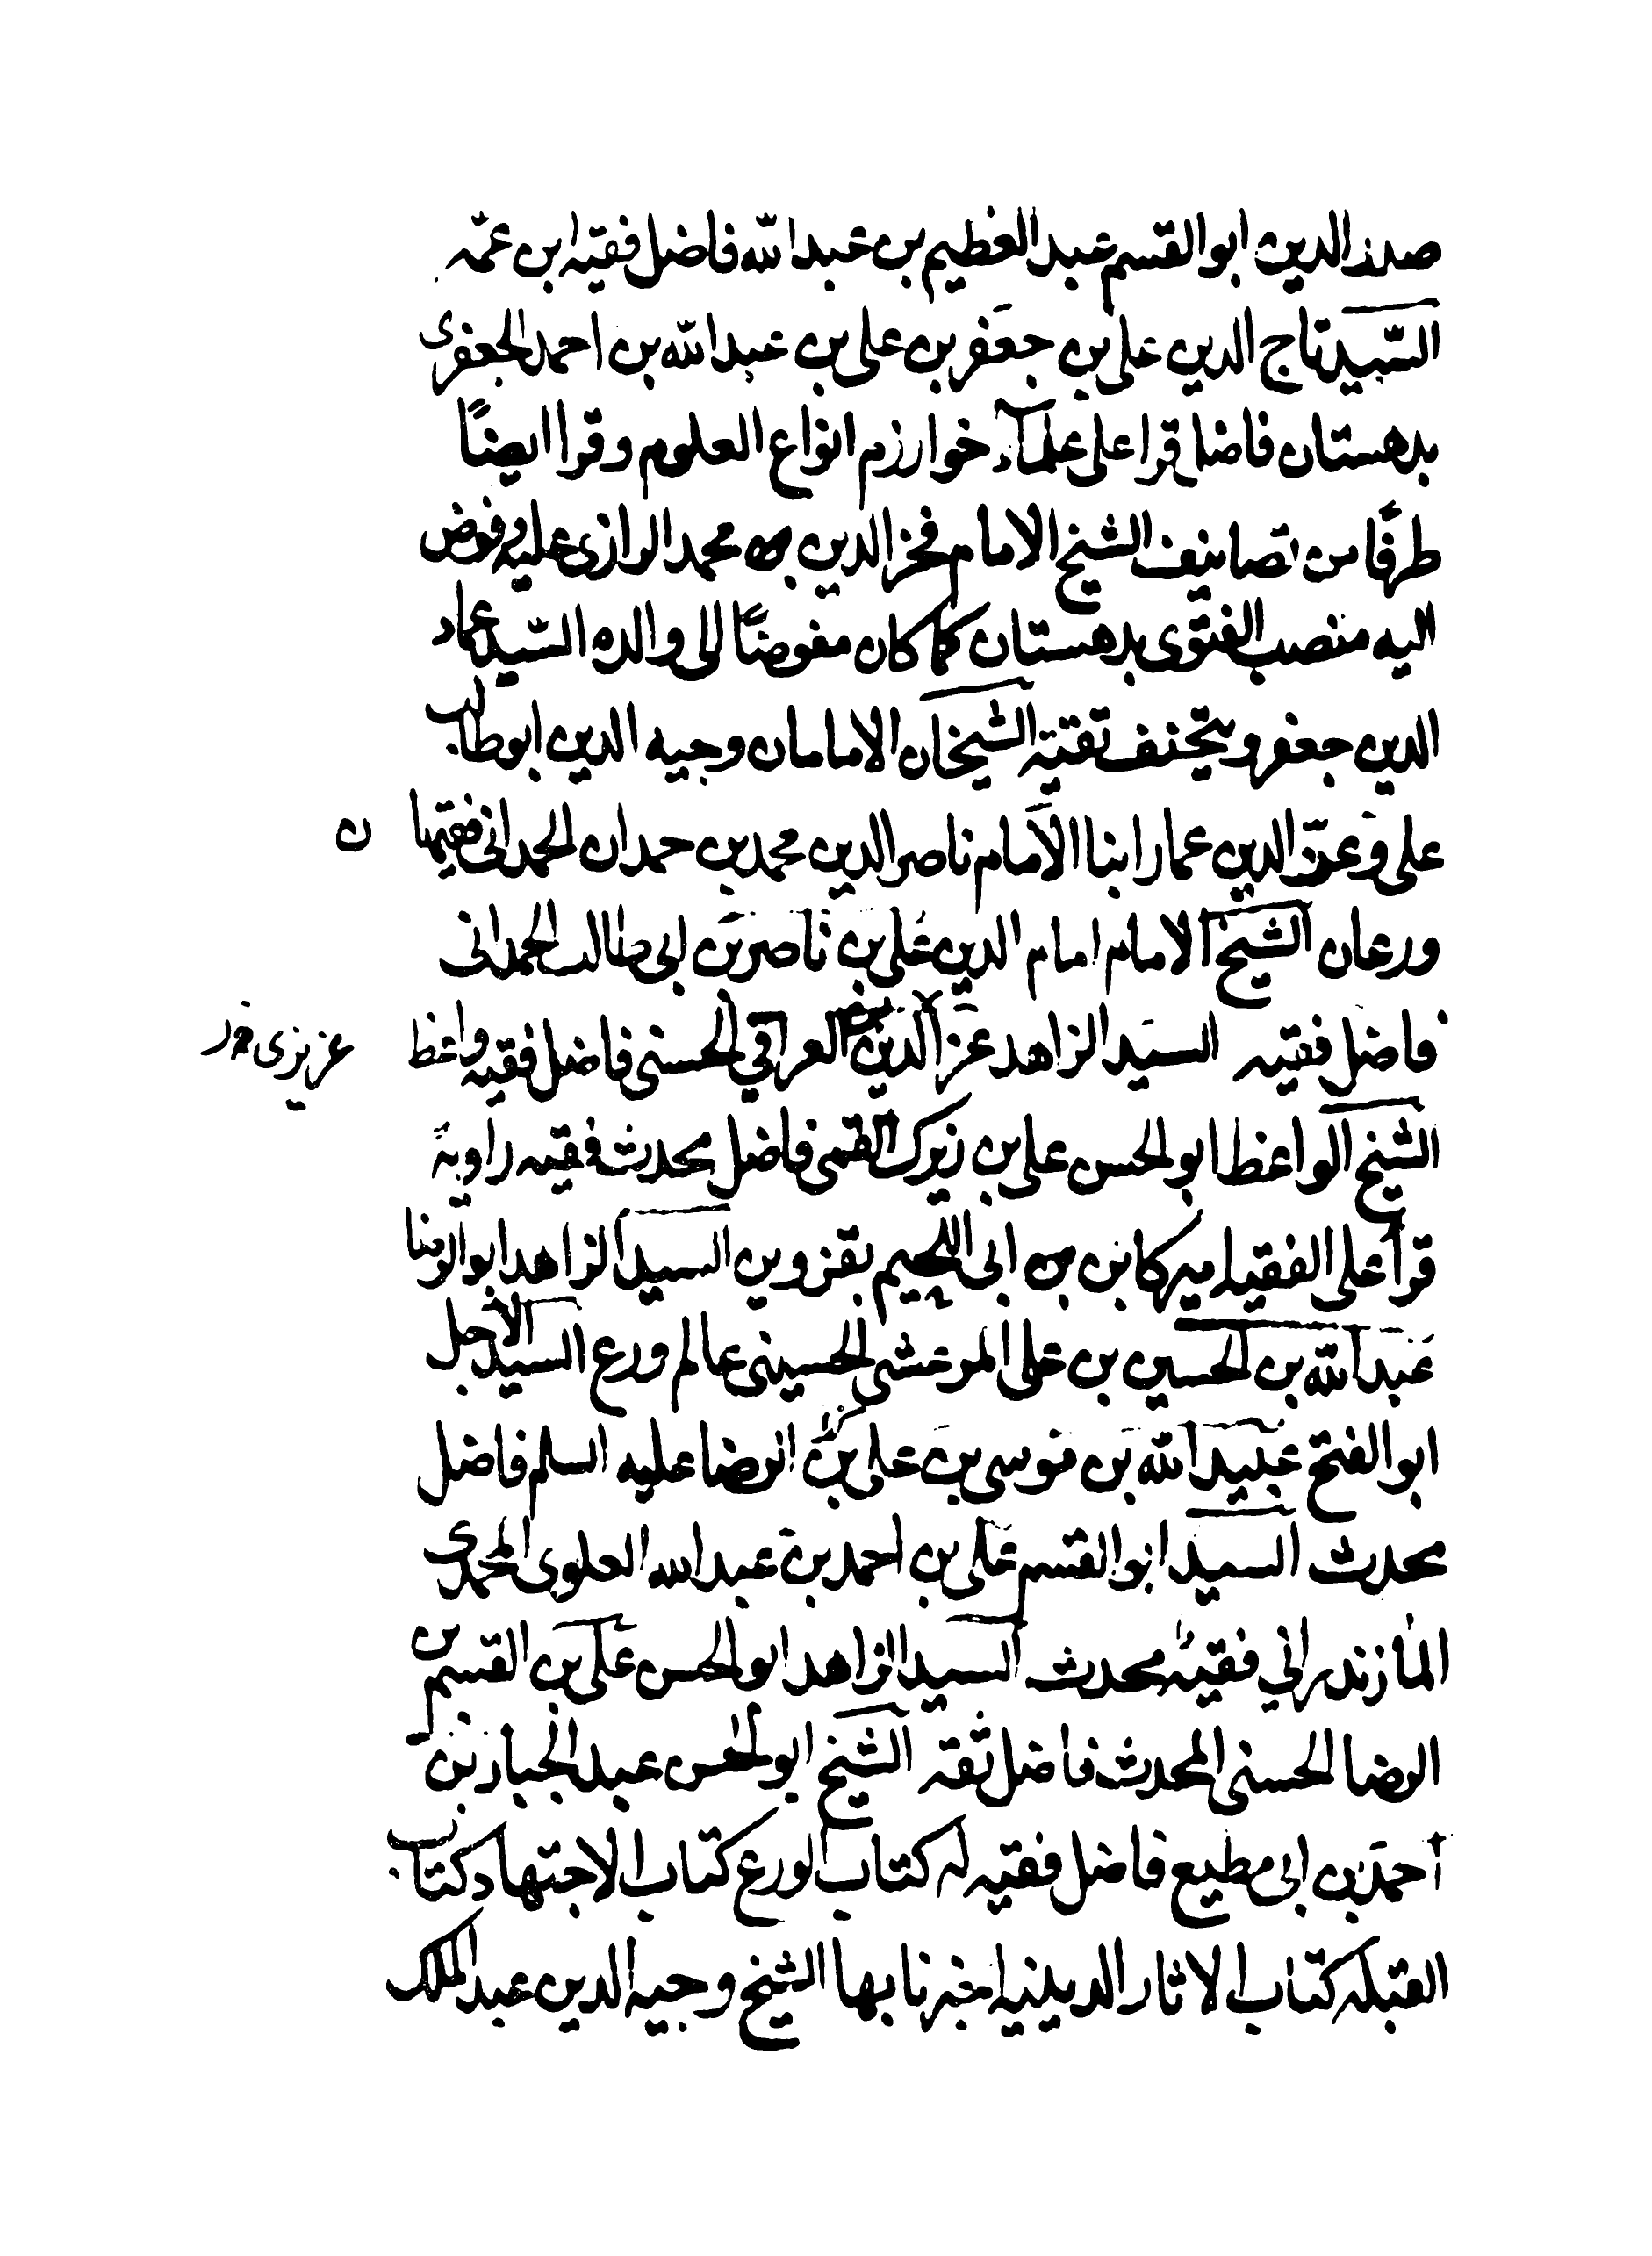 صدر الدين ابو القسم عبد العظيم بن عبد الله فاضل فقيه ابن عمّه
السّيد تاج الدين على بن جعفر بن على بن عبد الله بن احمد الجعفرى
بدهستان فاضل قرا على علمآء خوارزم انواع العلوم وقرا ايضًا
طرفًا من تصانيف الشيخ الامام فخر الدين محمد الرازى عليه وفوض
اليه منصب الفتوى بدهستان كما كان مفوضًا الى والده السّيد عماد
الدين جعفر ويتحنف تقية الشيخان الامامان وجيه الدين ابو طالب
على وعزّ الدين عمار ابنا الامام ناصر الدين محمد بن حمدان الحمدانى فقيها ن
ورعان الشيخ الامام امام الدين على بن ناصر بن ابى طالب الحمدانى
فاضل فقيه السيد الزاهد عز الدين العراقي الحسنى فاضل فقيه واعظ
الشيخ الواعظ ابو الحسن على بن زيرك القمى فاضل محدث فقيه راوية
قرأ على الفقيه اميركا بن ابى اللجيم بقزوين السيد الزاهد ابو الرضا
عبد الله بن الحسين بن على المرعشى الحسينى عالم ورع السيد الاجل
ابو الفتح عبيد الله بن موسى بن على بن الرضا عليه السلم فاضل
محدث السيد ابو القسم على بن احمد بن عبد الله العلوى المحمدى
المازندراني فقيه محدث السيد الزاهد ابو الحسن على بن القسم بن
الرضا الحسنى المحدث فاضل ثقه الشيخ ابو الحسن عبد الجبار بن
أحمد بن ابى مطيع فاضل فقيه له كتاب الورع كتاب الاجتهاد كتاب
القبلة كتاب الاثار الدينيه اخبرنا بها الشيخ وجيه الدين عبد الملك